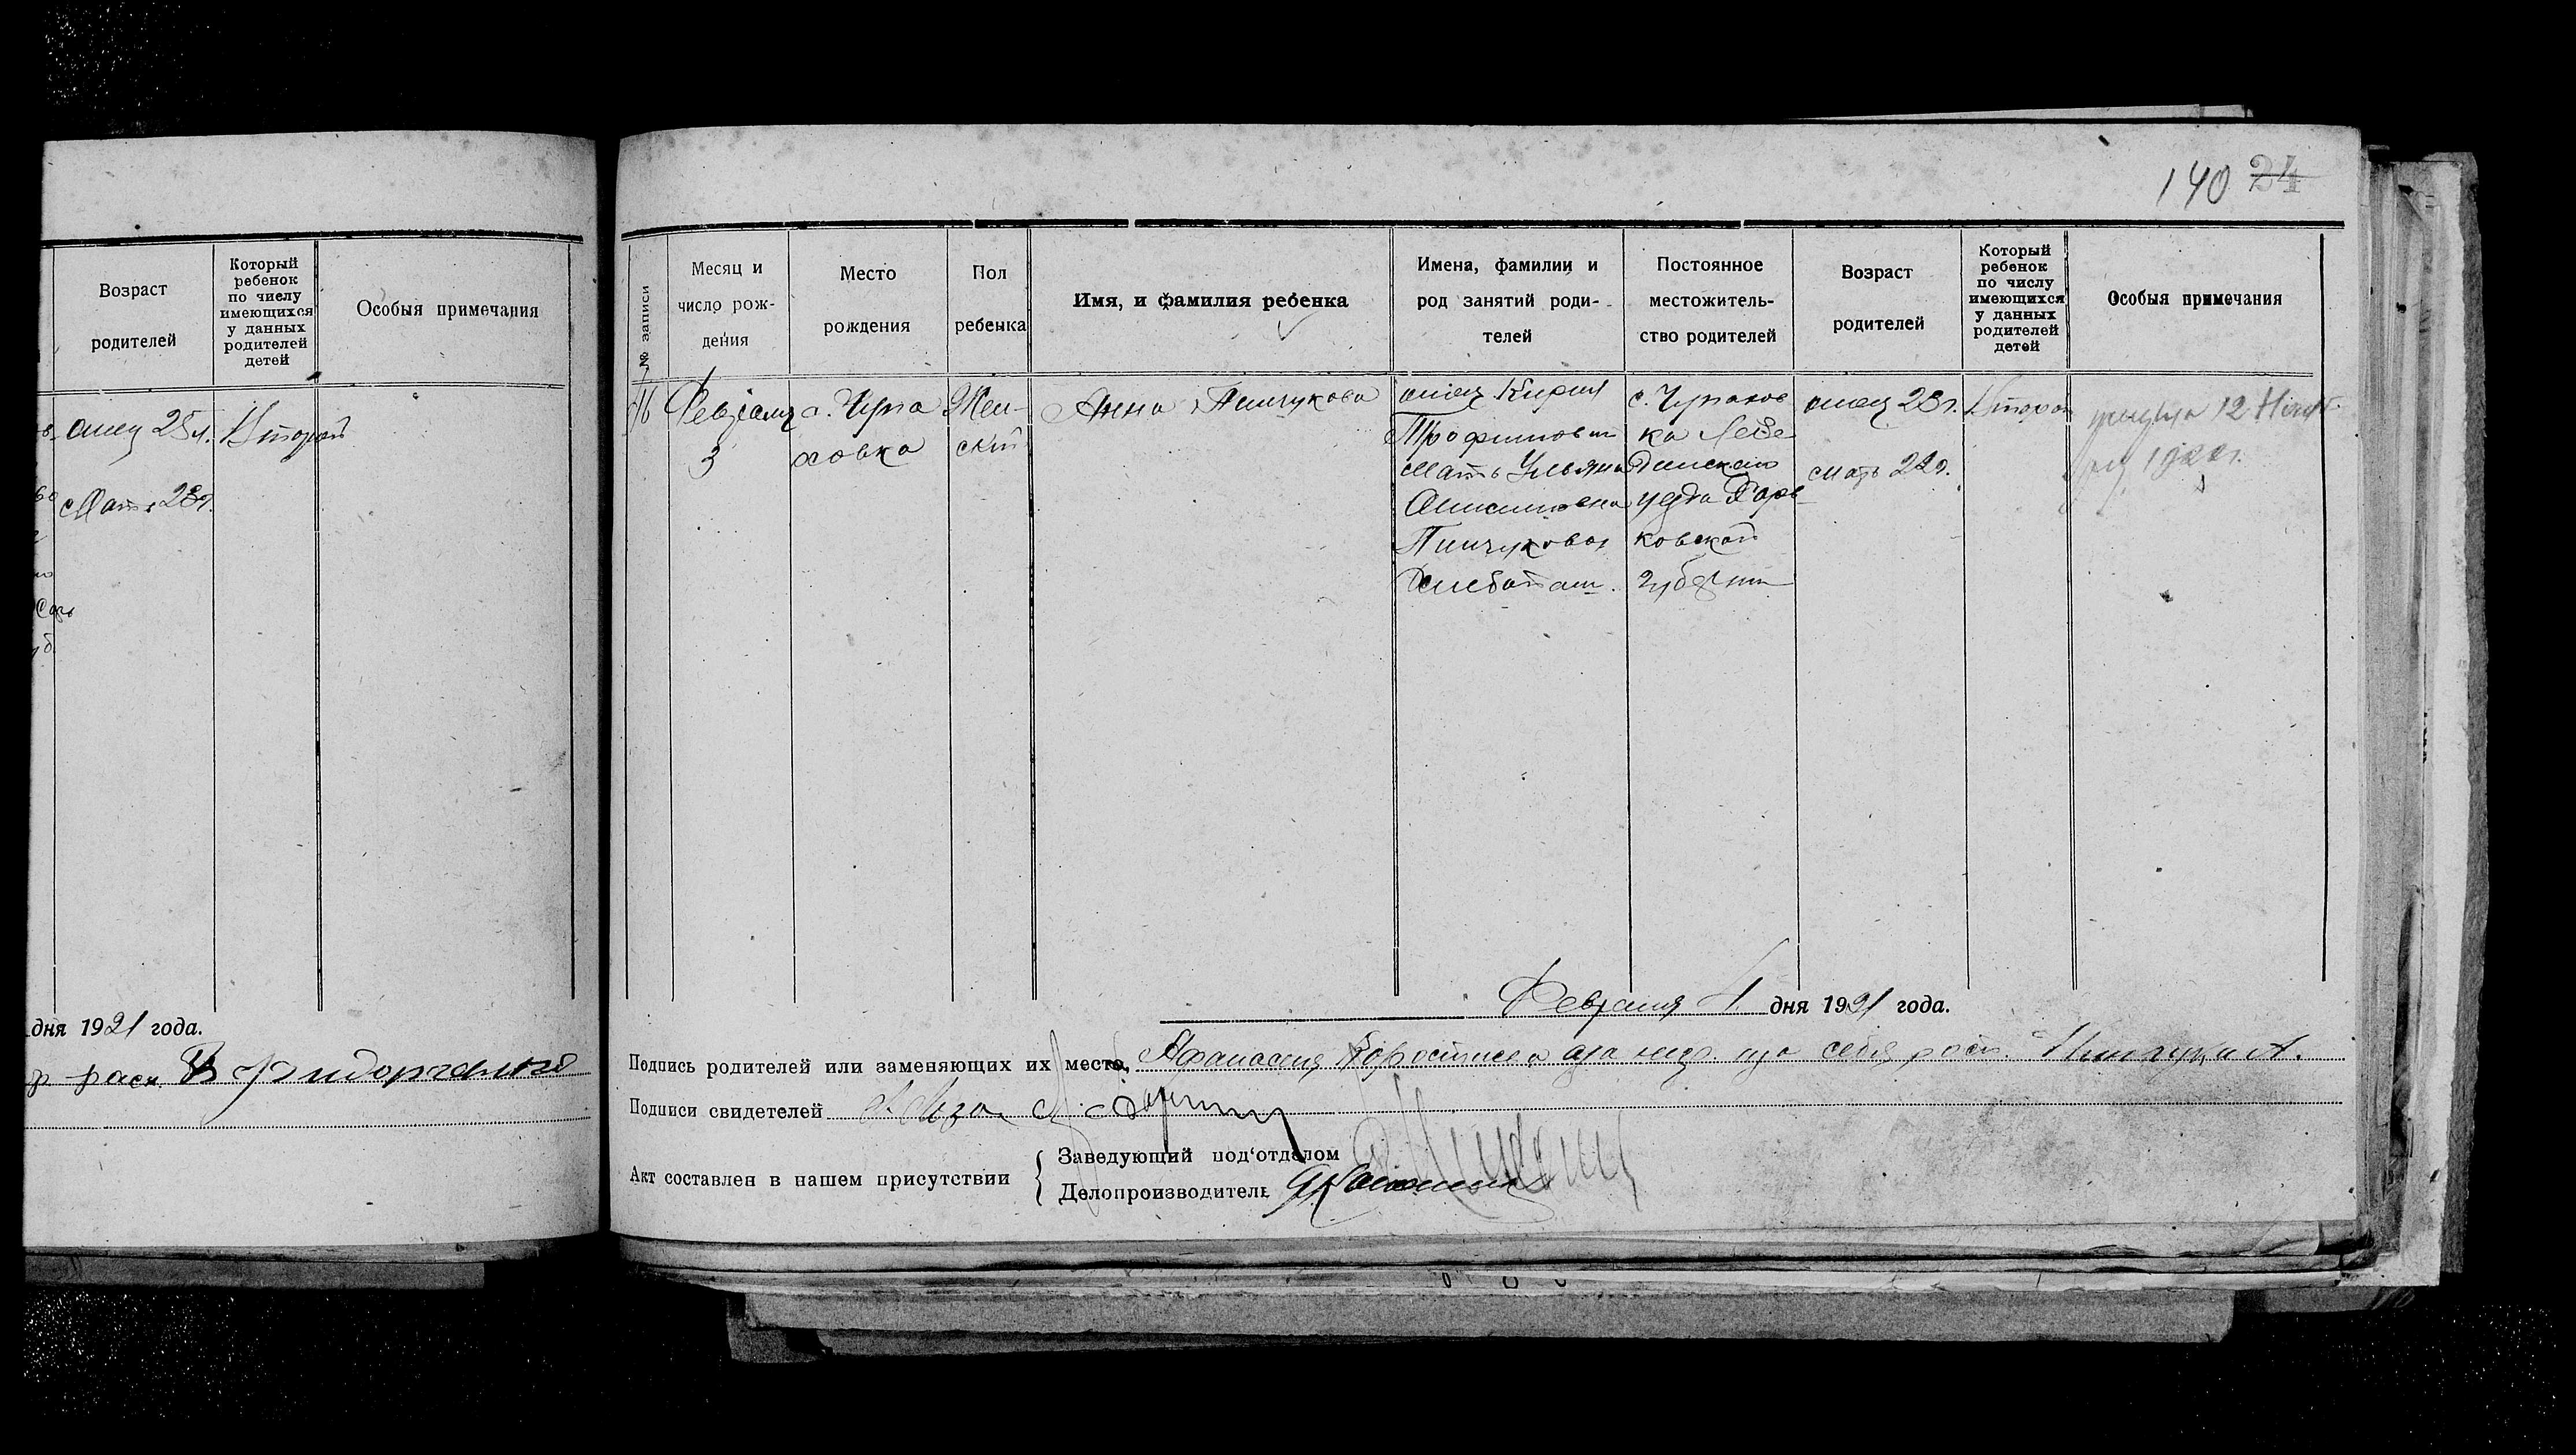 Возраст
родителей
Который
ребенок
по числу
имеющихся
у данных
родителей
детей
Особыя примечания
отец 25 л.
Второй
Мать 23 г.
дня 1921 года.
140 24
№ записи
Месяц и
число рож-
дения
Место
рождения
Пол
ребенка
Имя, и фамилия ребенка
Имена, фамилии и
род занятий роди-
телей
Постоянное
местожитель-
ство родителей
Возраст
родителей
Который
ребенок
по числу
имеющихся
у данных
родителей
детей
Особыя примечания
16
Февраля
3
с. Чупа
ховка
Жен-
ский
Анна Пинчукова
отец Кирил
Трофимович
Мать Ульяна
Анисимовна
Пинчуковы
Хлебопаш.
с. Чупахов
ка Лебе
динскаго
уезда Харь
ковской
губернии
отец 23 г.
мать 22 г.
Второй
12
Февраля 4 дня 1921 года.
Подпись родителей или заменяющих их место, Афанасия Коростиева а за негр. за себя росп. Пинчукъ А.
Подписи свидетелей
Акт составлен в нашем присутствии
Заведующий под'отделом
Делопроизводитель